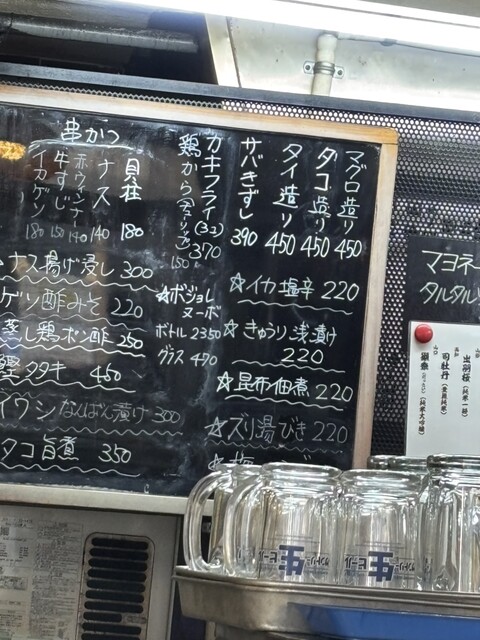 マグロ造り 450
タコ造り 450
タイ造り 450
サバきずし 390
カキフライ(3コ) 370
鶏から
150
串かつ
貝柱 180
ナス 140
ホウィンナー 140
牛すじ 150
イカゲソ 180
☆イカ塩辛 220
☆きゅうり浅漬け
220
☆昆布佃煮 220
☆ズリ湯びき 220
☆ボジョレ
ヌーボ
ボトル 2350
グラス 470
ナス揚げ浸し 300
ゲソ酢みそ 220
蒸し鶏ポン酢 250
鰹タタキ 450
イワシなんばん漬け 300
タコ旨煮 350
マヨネー
タルタルソ
出羽桜(純米一路)
司牡丹
(純米大吟醸)